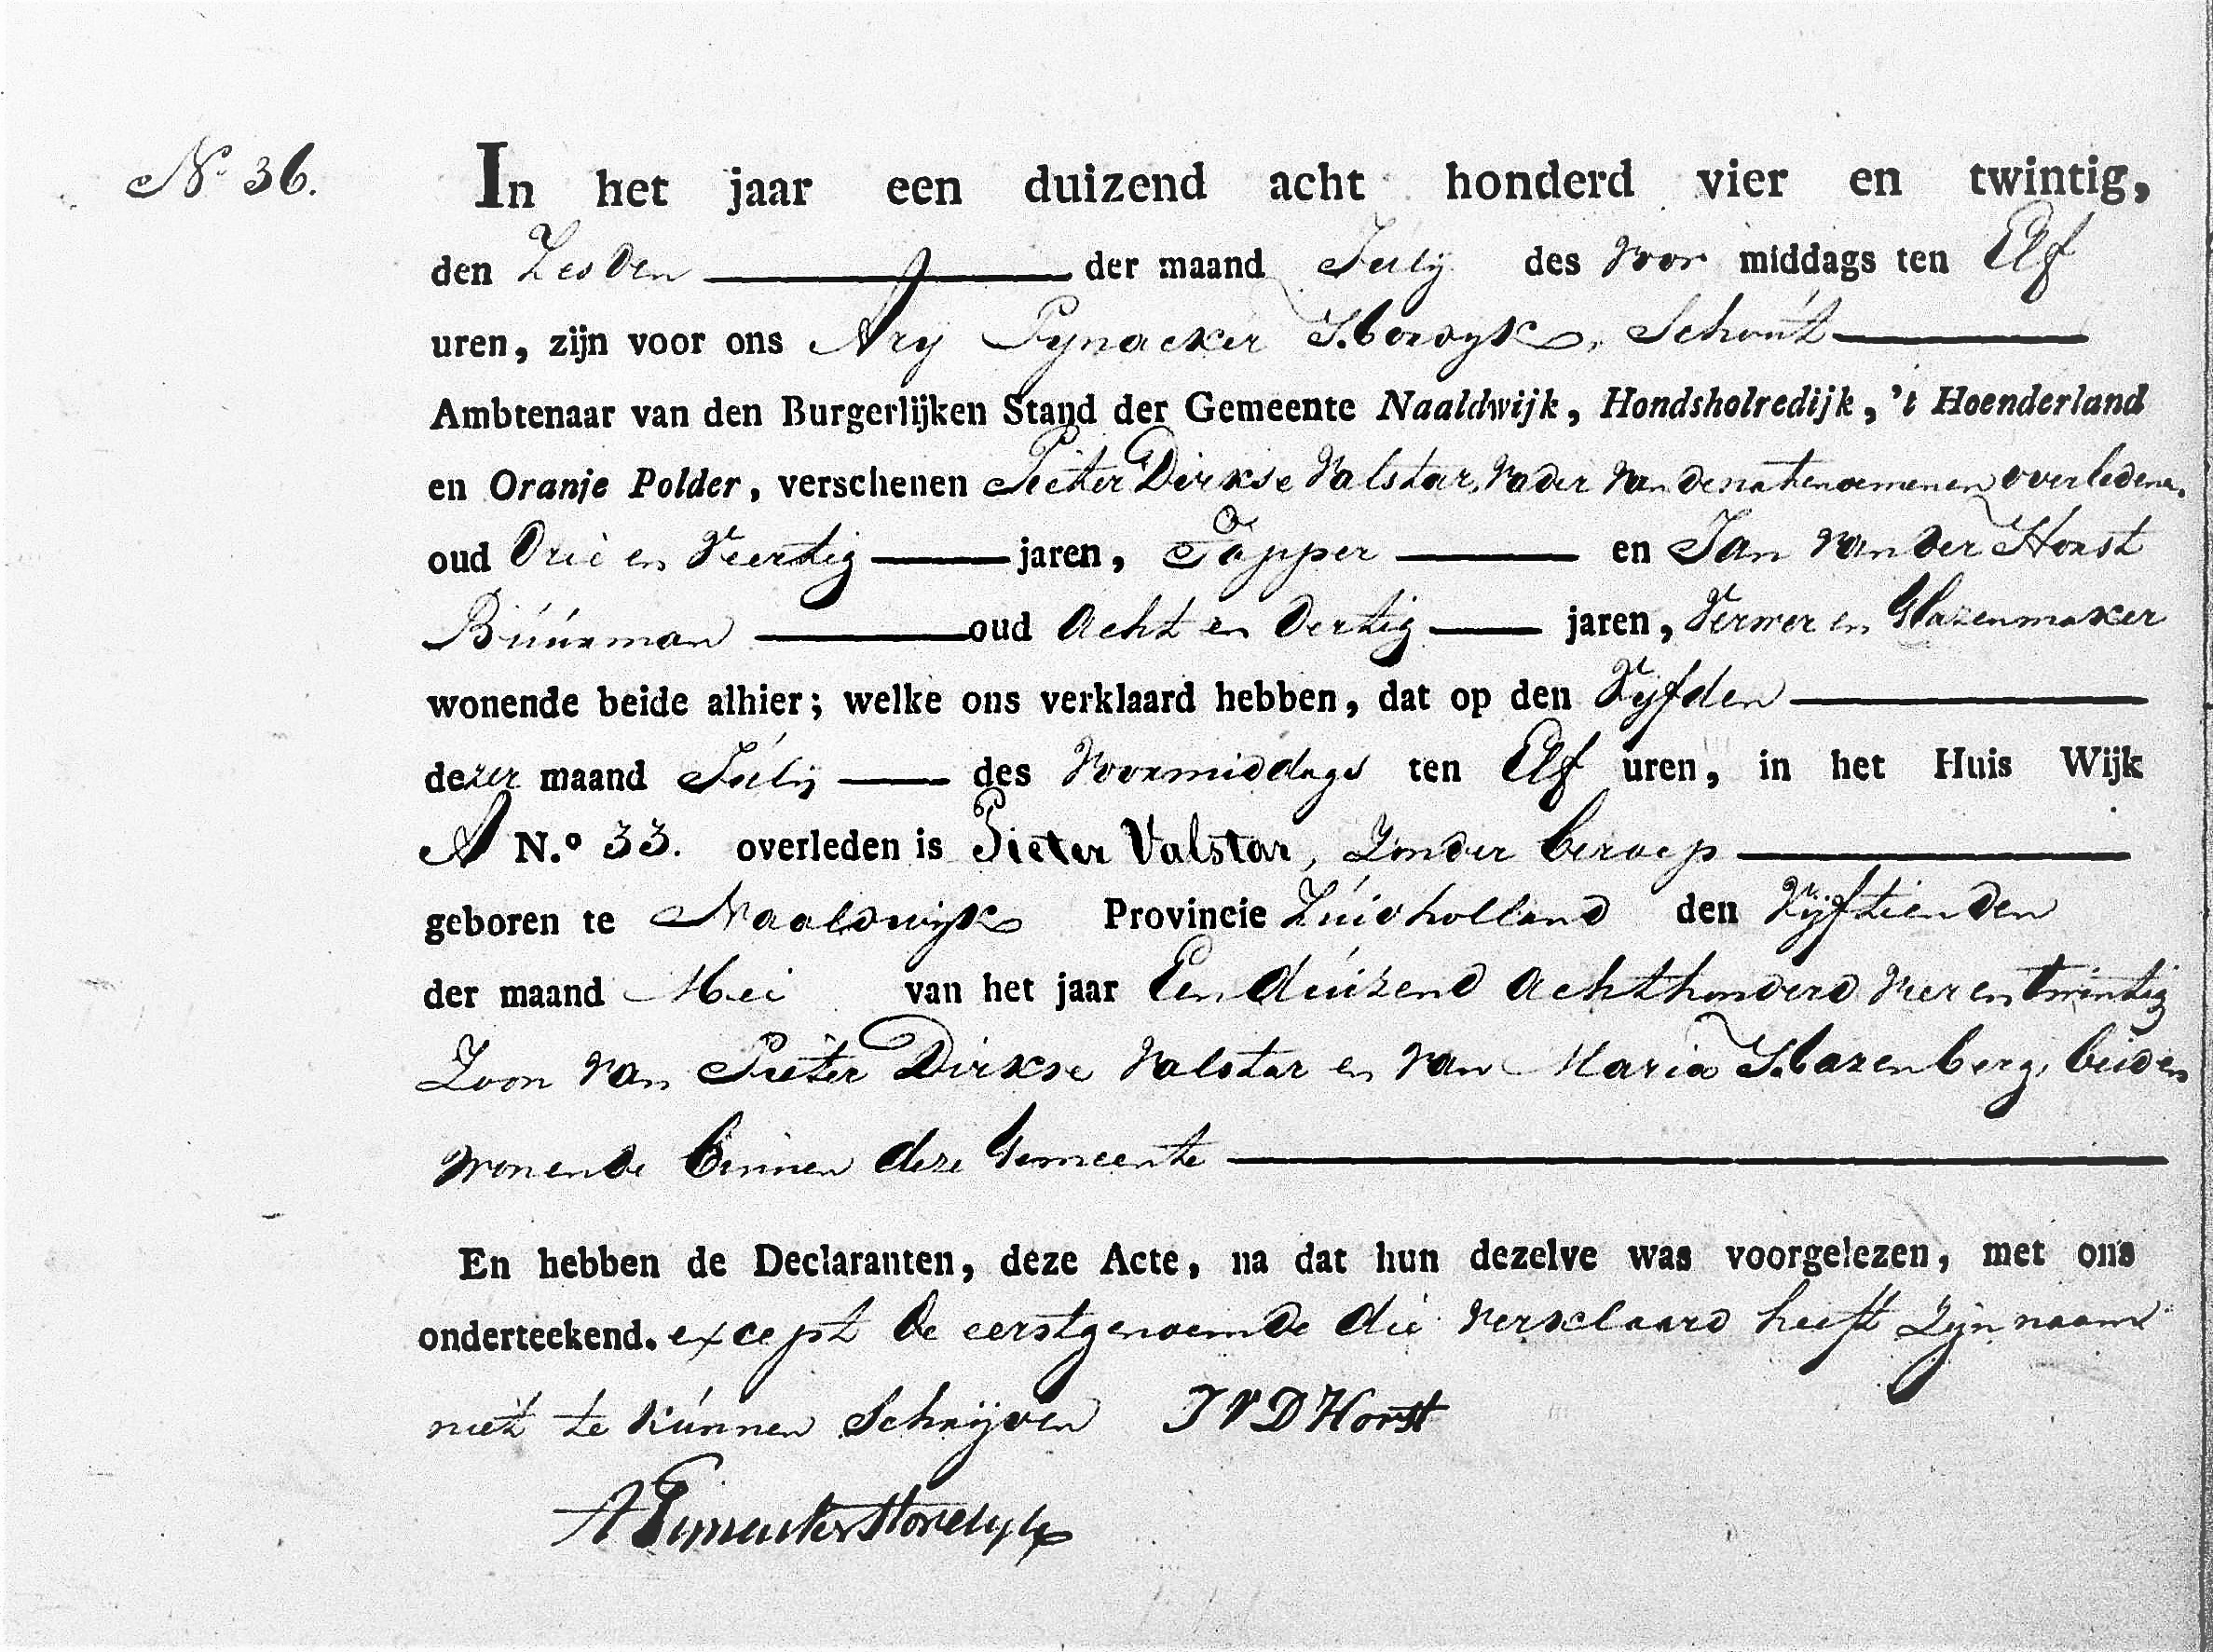 No 36.
In het jaar een duizend acht honderd vier en twintig,
den Zesden der maand July des Voor middags ten Elf
uren, zijn voor ons Ary Pynacker Hordyk, Schout
Ambtenaar van den Burgerlijken Stand der Gemeente Naaldwijk, Hondsholredijk, 't Hoenderland
en Oranje Polder, verschenen Pieter Dirkse Valstar, Vader van de natenoemenen overledene.
oud Drie en Veertig jaren, Tapper en Jan van der Horst
Buurman oud acht en dertig jaren, Verwer en Glazenmaker
wonende beide alhier; welke ons verklaard hebben, dat op den Vyfden
dezer maand July des Voormiddags ten Elf uren, in het Huis Wijk
A N.o 33. overleden is Pieter Valstar, Zonder beroep
geboren te Naaldwyk Provincie Zuidholland den Vyftienden
der maand Mei van het jaar Een duizend achthonderd Vier en Twintig
Zoon van Pieter Dirkse Valstar en van Maria Hazenberg, beiden
wonende binnen deze Gemeente
En hebben de Declaranten, deze Acte, na dat hun dezelve was voorgelezen, met ons
onderteekend. except de eerstgenoemde die verklaard heeft Zyn naam
niet te kunnen Schryven J V D Horst
A Pynacker Hordyk